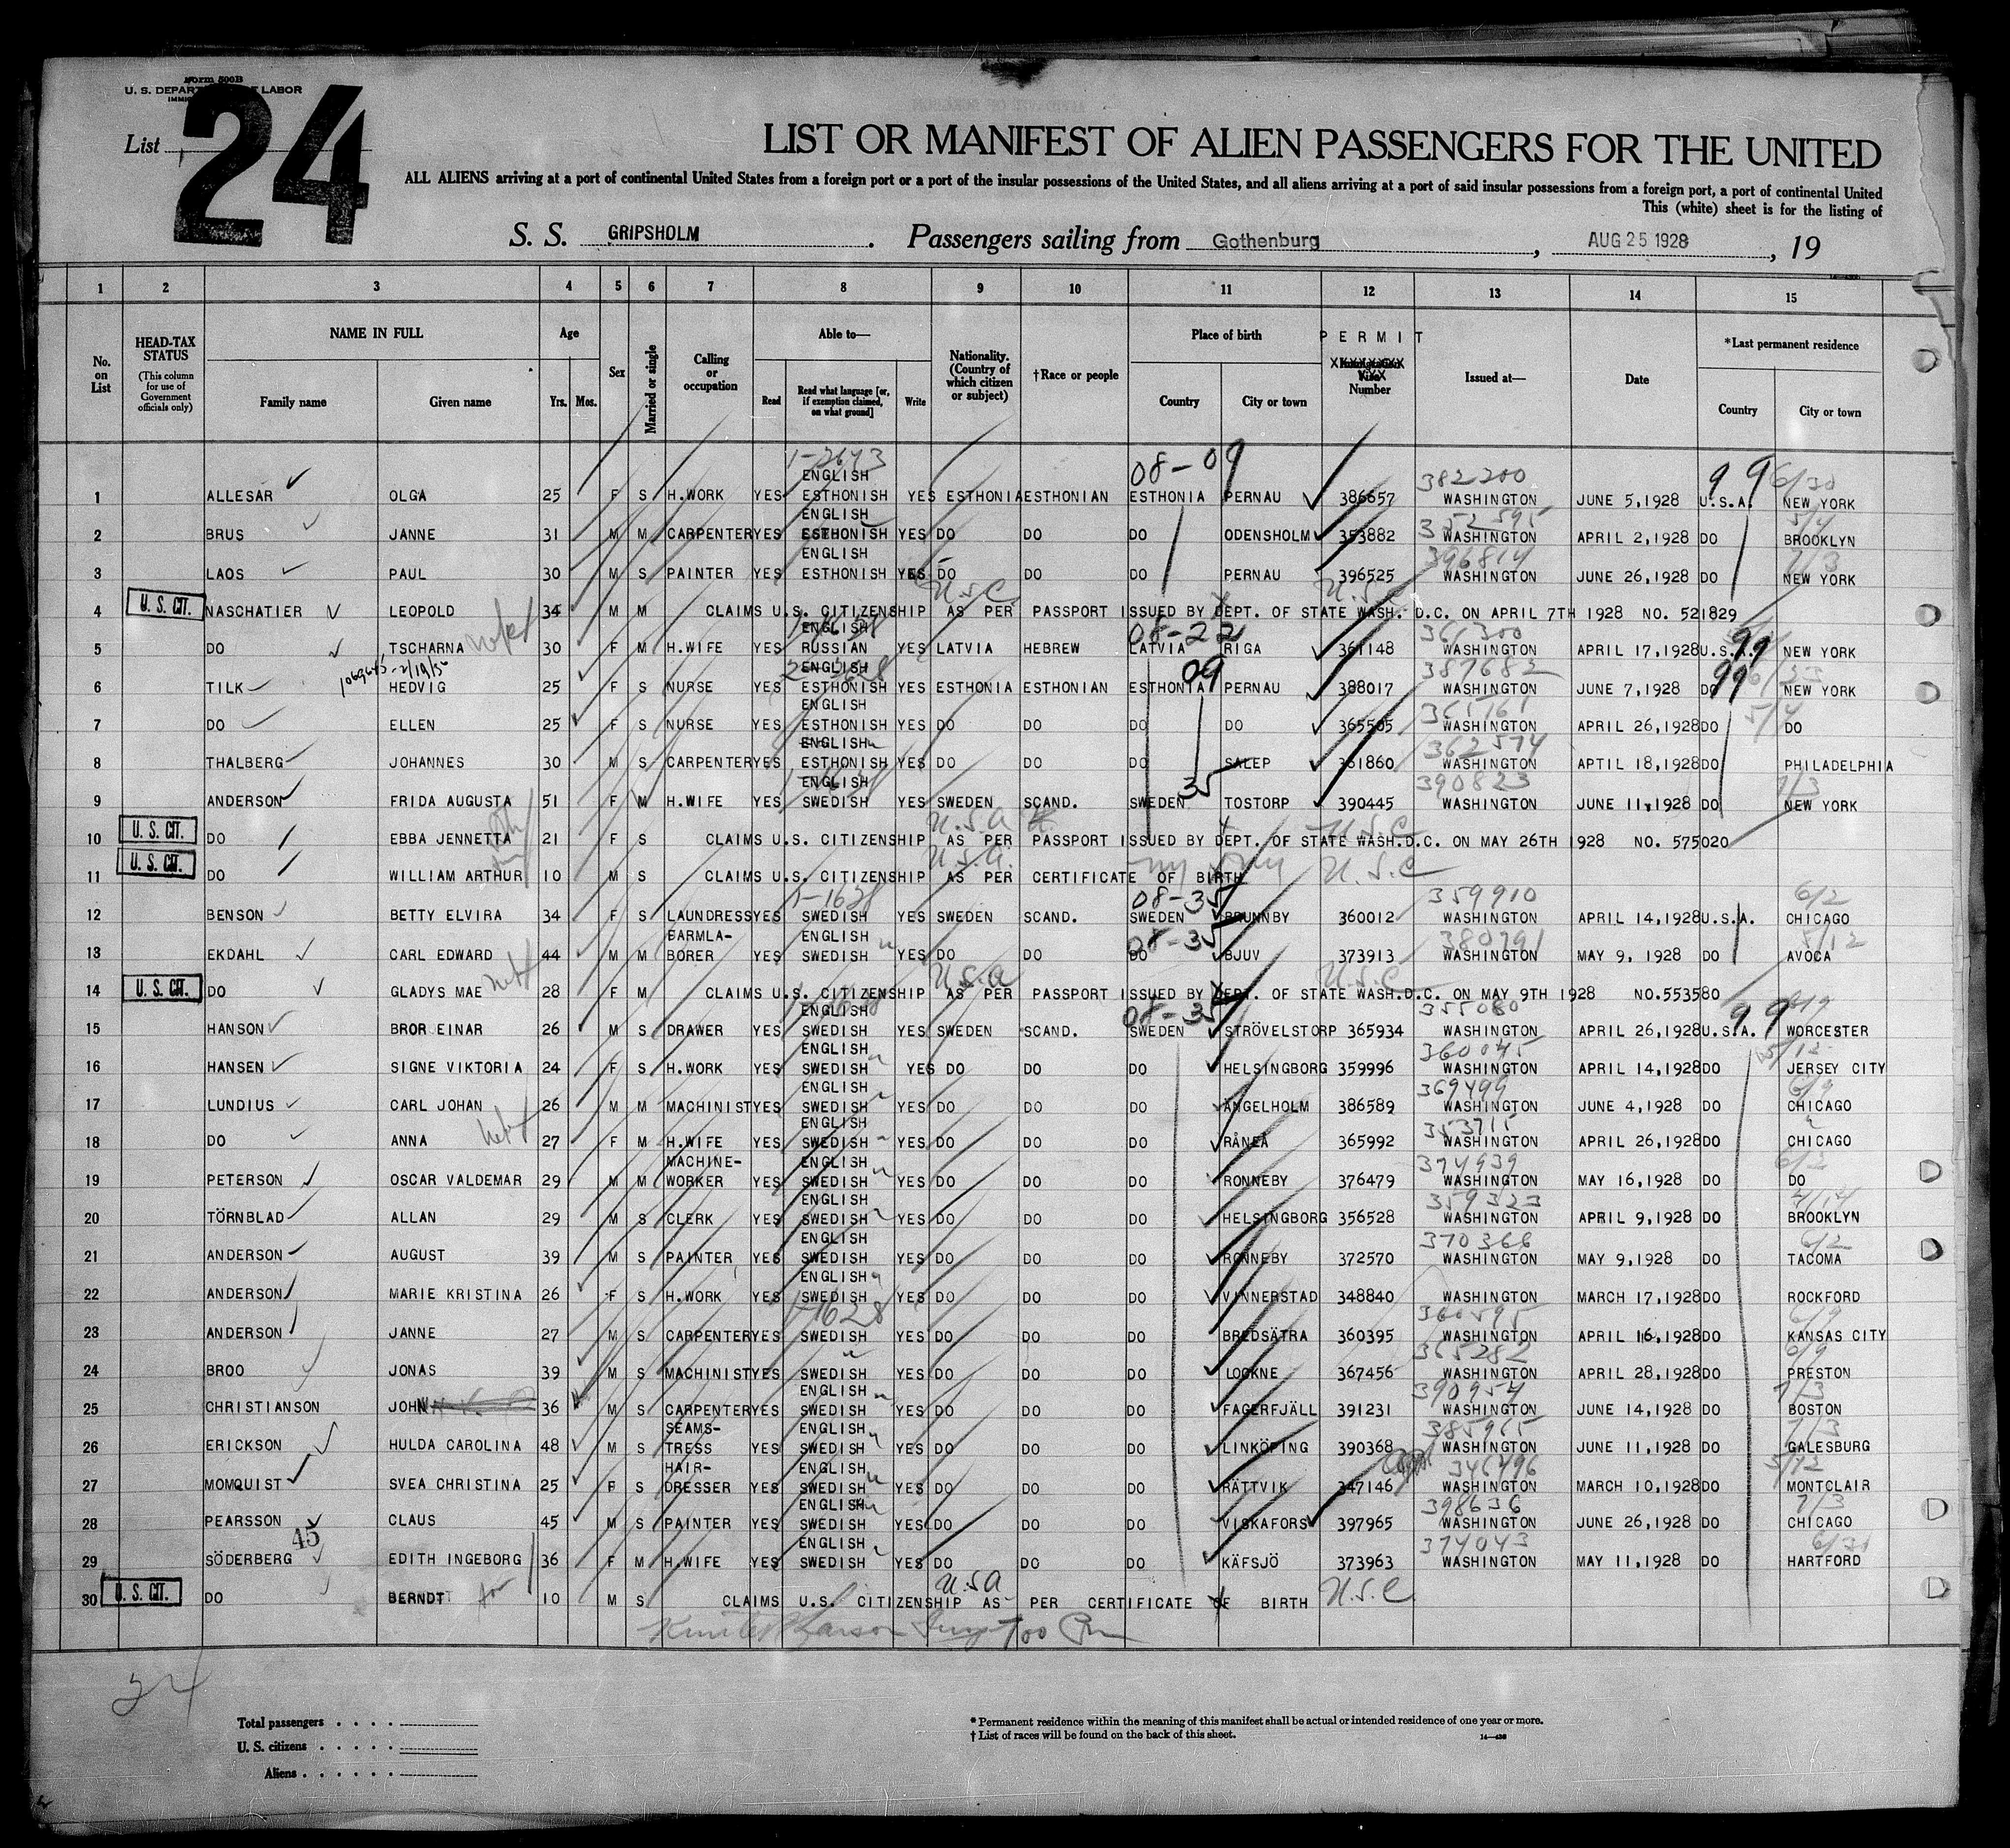 Form 500B
U. S. DEPARTMENT OF LABOR
List 24
LIST OR MANIFEST OF ALIEN PASSENGERS FOR THE UNITED
ALL ALIENS arriving at a port of continental United States from a foreign port or a port of the insular possessions of the United States, and all aliens arriving at a port of said insular possessions from a foreign port, a port of continental United
This (white) sheet is for the listing of
S. S. GRIPSHOLM . Passengers sailing from Gothenburg , AUG 25 1928 , 19
1 2 3 4 5 6 7 8 9 10 11 12 13 14 15
No. on List
HEAD-TAX STATUS (This column for use of Government officials only)
NAME IN FULL Family name Given name
Age Yrs. Mos.
Sex
Married or single
Calling or occupation
Able to— Read Read what language [or, if exemption claimed, on what ground] Write
Nationality. (Country of which citizen or subject)
†Race or people
Place of birth Country City or town
PERMIT Number
Issued at—
Date
*Last permanent residence Country City or town
1-2643 08-09 382200 99 6/30
1 ALLESAR OLGA 25 F S H.WORK YES ENGLISH ESTHONISH YES ESTHONIA ESTHONIAN ESTHONIA PERNAU 386657 WASHINGTON JUNE 5,1928 U.S.A. NEW YORK
352595 5/4
2 BRUS JANNE 31 M M CARPENTER YES ENGLISH ESTHONISH YES DO DO DO ODENSHOLM 353882 WASHINGTON APRIL 2,1928 DO BROOKLYN
396814 7/3
3 LAOS PAUL 30 M S PAINTER YES ENGLISH ESTHONISH YES DO DO DO PERNAU 396525 WASHINGTON JUNE 26,1928 DO NEW YORK
U.S.C. U.S.C
4 U. S. CIT. NASCHATIER LEOPOLD 34 M M CLAIMS U.S. CITIZENSHIP AS PER PASSPORT ISSUED BY DEPT. OF STATE WASH. D.C. ON APRIL 7TH 1928 NO. 521829
08-22 361300 99
5 DO TSCHARNA 30 F M H.WIFE YES ENGLISH RUSSIAN YES LATVIA HEBREW LATVIA RIGA 361148 WASHINGTON APRIL 17,1928 U.S.A. NEW YORK
09 387682 99
6 TILK HEDVIG 25 F S NURSE YES ENGLISH ESTHONISH YES ESTHONIA ESTHONIAN ESTHONIA PERNAU 388017 WASHINGTON JUNE 7,1928 DO NEW YORK
365161 5/4
7 DO ELLEN 25 F S NURSE YES ENGLISH ESTHONISH YES DO DO DO DO 365505 WASHINGTON APRIL 26,1928 DO DO
362574
8 THALBERG JOHANNES 30 M S CARPENTER YES ENGLISH ESTHONISH YES DO DO DO SALEP 361860 WASHINGTON APTIL 18,1928 DO PHILADELPHIA
35 390823 7/3
9 ANDERSON FRIDA AUGUSTA 51 F M H.WIFE YES ENGLISH SWEDISH YES SWEDEN SCAND. SWEDEN TOSTORP 390445 WASHINGTON JUNE 11,1928 DO NEW YORK
U.S.A U.S.C
10 U. S. CIT. DO EBBA JENNETTA 21 F S CLAIMS U.S. CITIZENSHIP AS PER PASSPORT ISSUED BY DEPT. OF STATE WASH.D.C. ON MAY 26TH 1928 NO. 575020
U.S.A. U.S.C
11 U. S. CIT. DO WILLIAM ARTHUR 10 M S CLAIMS U.S. CITIZENSHIP AS PER CERTIFICATE OF BIRTH
1-1628 08-35 359910 6/2
12 BENSON BETTY ELVIRA 34 F S LAUNDRESS YES SWEDISH YES SWEDEN SCAND. SWEDEN BRUNNBY 360012 WASHINGTON APRIL 14,1928 U.S.A. CHICAGO
08-35 380791 5/12
13 EKDAHL CARL EDWARD 44 M M BARMLA-BORER YES ENGLISH SWEDISH YES DO DO DO BJUV 373913 WASHINGTON MAY 9, 1928 DO AVOCA
U.S.A U.S.C
14 U. S. CIT. DO GLADYS MAE 28 F M CLAIMS U.S. CITIZENSHIP AS PER PASSPORT ISSUED BY DEPT. OF STATE WASH.D.C. ON MAY 9TH 1928 NO.553580
08-35 355080 99
15 HANSON BROR EINAR 26 M S DRAWER YES ENGLISH SWEDISH YES SWEDEN SCAND. SWEDEN STRÖVELSTORP 365934 WASHINGTON APRIL 26,1928 U.S.A. WORCESTER
360045 5/12
16 HANSEN SIGNE VIKTORIA 24 F S H.WORK YES ENGLISH SWEDISH YES DO DO DO HELSINGBORG 359996 WASHINGTON APRIL 14,1928 DO JERSEY CITY
369499 6/9
17 LUNDIUS CARL JOHAN 26 M M MACHINIST YES ENGLISH SWEDISH YES DO DO DO ÄNGELHOLM 386589 WASHINGTON JUNE 4,1928 DO CHICAGO
353715
18 DO ANNA 27 F M H.WIFE YES ENGLISH SWEDISH YES DO DO DO RÅNEÅ 365992 WASHINGTON APRIL 26,1928 DO CHICAGO
374939 6/2
19 PETERSON OSCAR VALDEMAR 29 M M MACHINE-WORKER YES ENGLISH SWEDISH YES DO DO DO RONNEBY 376479 WASHINGTON MAY 16,1928 DO DO
359323 4/14
20 TÖRNBLAD ALLAN 29 M S CLERK YES ENGLISH SWEDISH YES DO DO DO HELSINGBORG 356528 WASHINGTON APRIL 9,1928 DO BROOKLYN
370366 6/2
21 ANDERSON AUGUST 39 M S PAINTER YES ENGLISH SWEDISH YES DO DO DO RONNEBY 372570 WASHINGTON MAY 9,1928 DO TACOMA
22 ANDERSON MARIE KRISTINA 26 F S H.WORK YES ENGLISH SWEDISH YES DO DO DO VINNERSTAD 348840 WASHINGTON MARCH 17,1928 DO ROCKFORD
1-1628 360595 6/9
23 ANDERSON JANNE 27 M S CARPENTER YES SWEDISH YES DO DO DO BREDSÄTRA 360395 WASHINGTON APRIL 16,1928 DO KANSAS CITY
365282 6/9
24 BROO JONAS 39 M S MACHINIST YES SWEDISH YES DO DO DO LOCKNE 367456 WASHINGTON APRIL 28,1928 DO PRESTON
390954 7/3
25 CHRISTIANSON JOHN 36 M S CARPENTER YES ENGLISH SWEDISH YES DO DO DO FAGERFJÄLL 391231 WASHINGTON JUNE 14,1928 DO BOSTON
385965 7/3
26 ERICKSON HULDA CAROLINA 48 M S SEAMS-TRESS YES ENGLISH SWEDISH YES DO DO DO LINKÖPING 390368 WASHINGTON JUNE 11,1928 DO GALESBURG
346496 5/12
27 MOMQUIST SVEA CHRISTINA 25 F S HAIR-DRESSER YES ENGLISH SWEDISH YES DO DO DO RÄTTVIK 347146 WASHINGTON MARCH 10,1928 DO MONTCLAIR
398636 7/3
28 PEARSSON CLAUS 45 M S PAINTER YES ENGLISH SWEDISH YES DO DO DO VISKAFORS 397965 WASHINGTON JUNE 26,1928 DO CHICAGO
45 374043
29 SÖDERBERG EDITH INGEBORG 36 F M H.WIFE YES ENGLISH SWEDISH YES DO DO DO KÄFSJÖ 373963 WASHINGTON MAY 11,1928 DO HARTFORD
U.S.A U.S.C
30 U. S. CIT. DO BERNDT 10 M S CLAIMS U.S. CITIZENSHIP AS PER CERTIFICATE OF BIRTH
24
Total passengers . . . .
U. S. citizens . . . . .
Aliens . . . . . .
* Permanent residence within the meaning of this manifest shall be actual or intended residence of one year or more.
† List of races will be found on the back of this sheet.